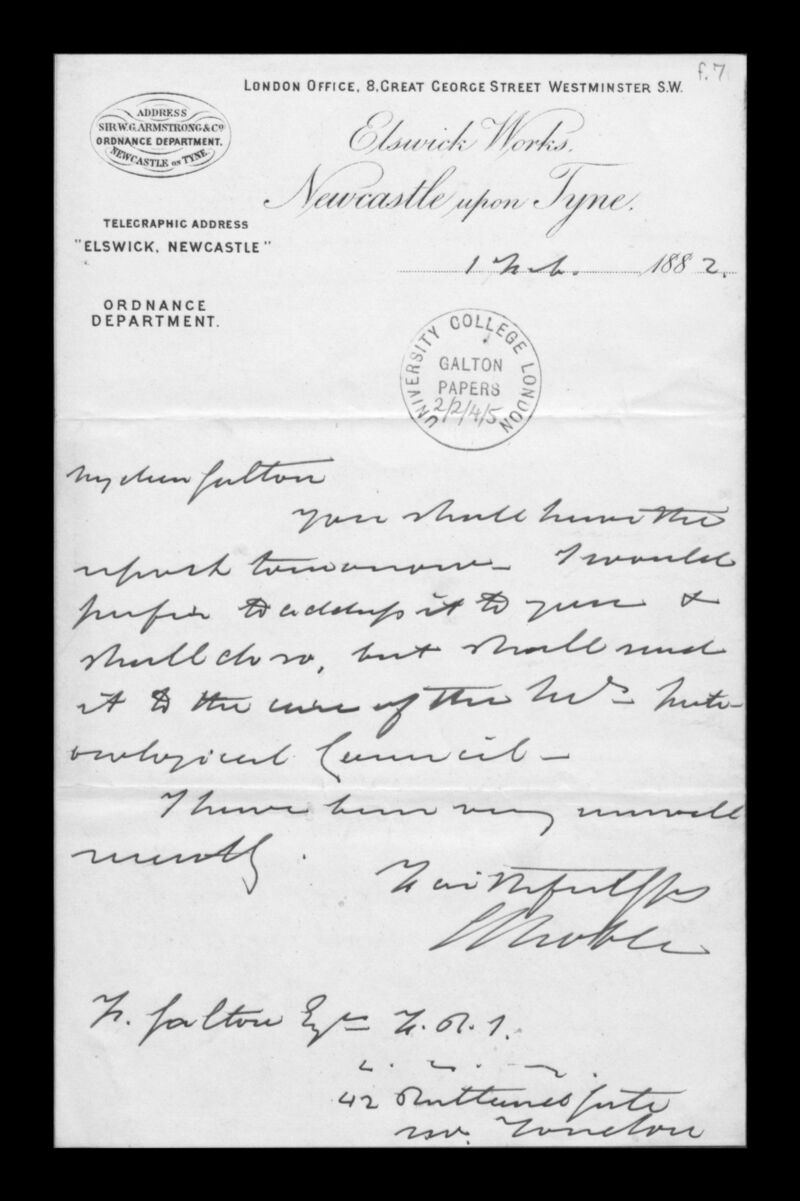 f.7
LONDON OFFICE, 8, GREAT GEORGE STREET WESTMINSTER S.W.
ADDRESS
SIR W. G. ARMSTRONG & Co
ORDNANCE DEPARTMENT,
NEWCASTLE ON TYNE
Elswick Works,
Newcastle upon Tyne.
TELEGRAPHIC ADDRESS
"ELSWICK, NEWCASTLE"
1 Feb. 1882.
ORDNANCE
DEPARTMENT.
UNIVERSITY COLLEGE LONDON
GALTON
PAPERS
2/2/4/5
My dear Galton
You shall have the
report tomorrow - I would
prefer to address it to you &
shall do so, but shall send
it to the care of the Mete-
orological Council -
I have been very unwell
recently.
Faithfully yrs
A Noble
F. Galton Esqre F.R.S.
42 Rutland Gate
London